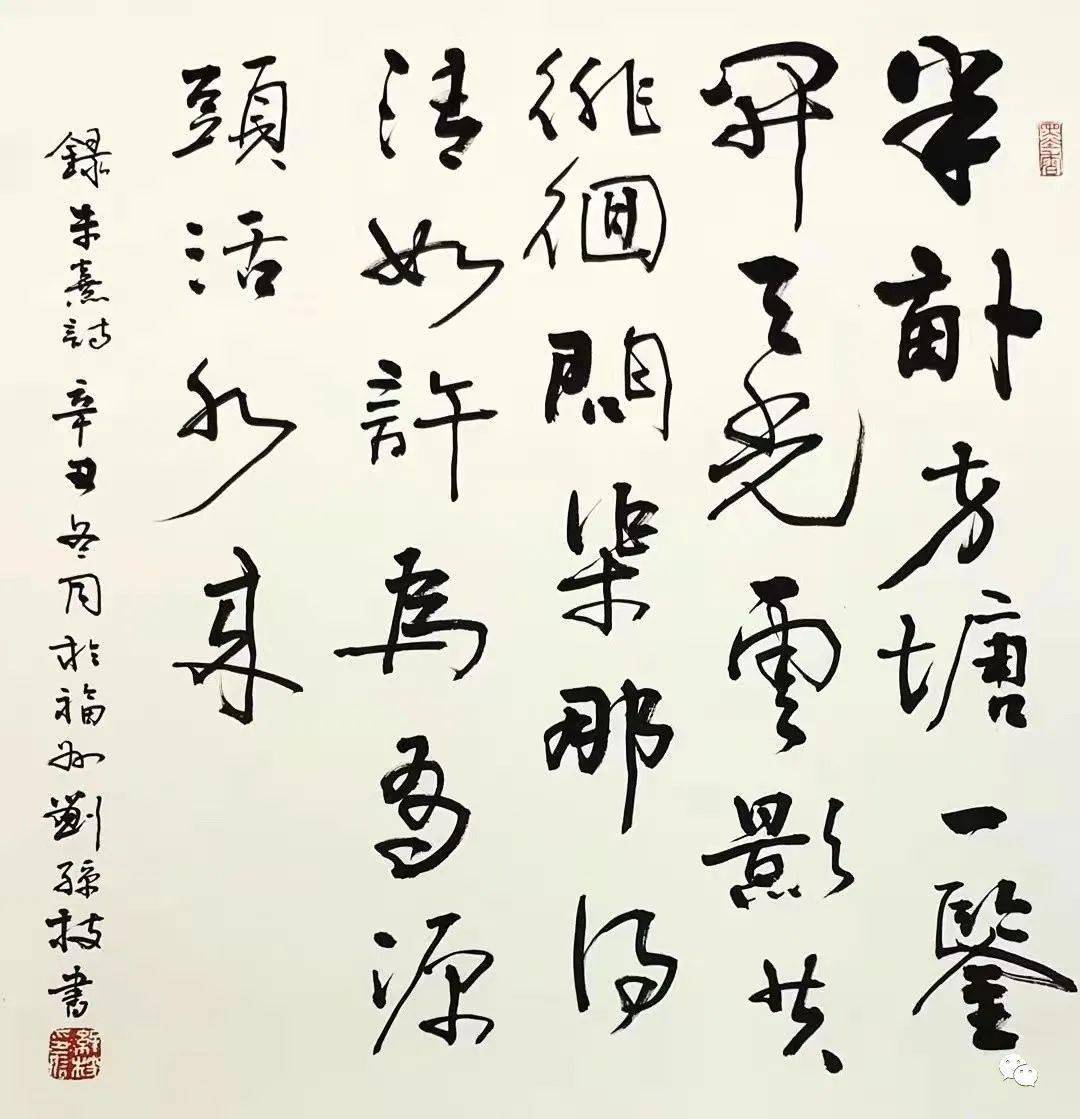 半畝方塘一鑒
開天光雲影共
徘徊問渠那得
清如許為有源
頭活水來
錄朱熹詩 辛丑冬月於福州劉孫枝書